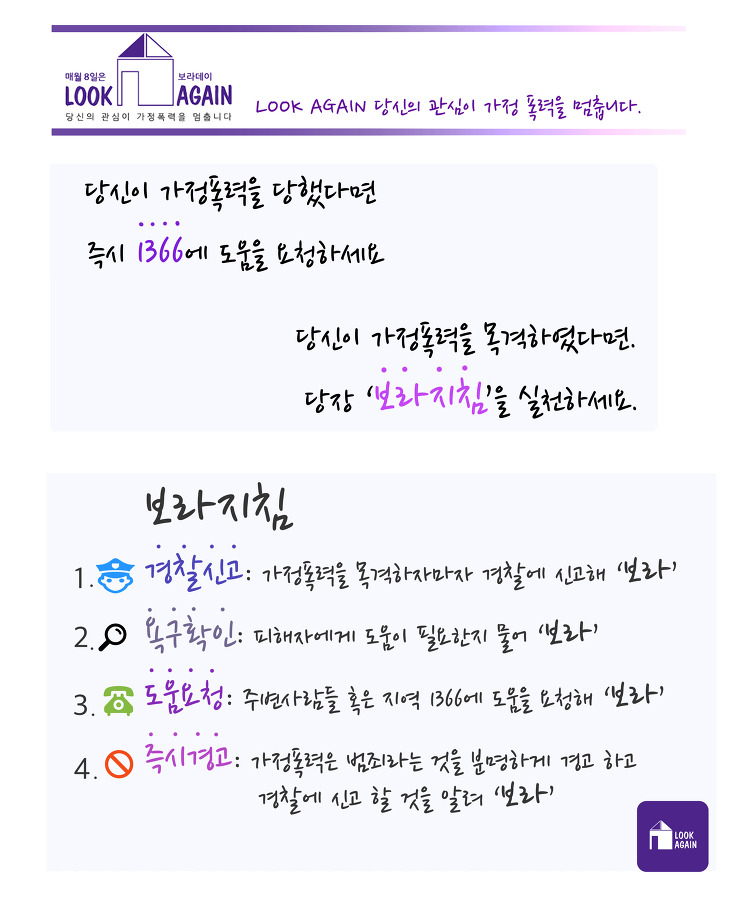 매월 8일은 보라데이
LOOK AGAIN
당신의 관심이 가정폭력을 멈춥니다
LOOK AGAIN 당신의 관심이 가정 폭력을 멈춥니다.
당신이 가정폭력을 당했다면
즉시 1366에 도움을 요청하세요
당신이 가정폭력을 목격하였다면.
당장 ‘보라지침’을 실천하세요.
보라지침
1. 경찰신고: 가정폭력을 목격하자마자 경찰에 신고해 ‘보라’
2. 욕구확인: 피해자에게 도움이 필요한지 물어 ‘보라’
3. 도움요청: 주변사람들 혹은 지역 1366에 도움을 요청해 ‘보라’
4. 즉시경고: 가정폭력은 범죄라는 것을 분명하게 경고 하고
경찰에 신고 할 것을 알려 ‘보라’
LOOK
AGAIN